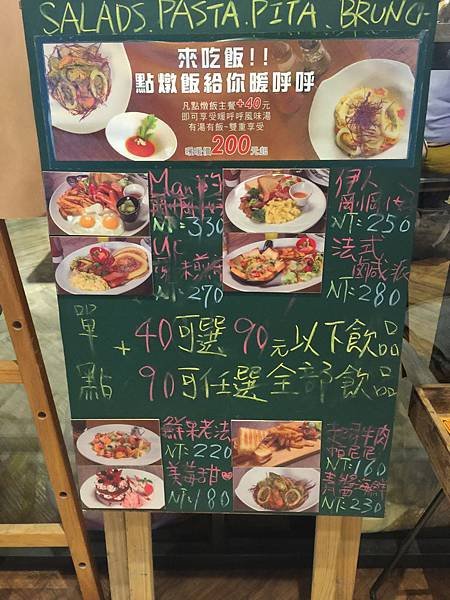 SALADS. PASTA. PITA. BRUNC
來吃飯!!
點燉飯給你暖呼呼
凡點燉飯主餐+40元
即可享受暖呼呼風味湯
有湯有飯~雙重享受
暖暖價200元起
Man的
NT:330
伊人
NT:250
NT:270
法式
鹹派
NT:280
單點
+40可選90元以下飲品
90可任選全部飲品
鮮果老法
NT:220
美莓甜♥
NT:180
牛肉
帕尼尼
NT:160
青醬海鮮
NT:230